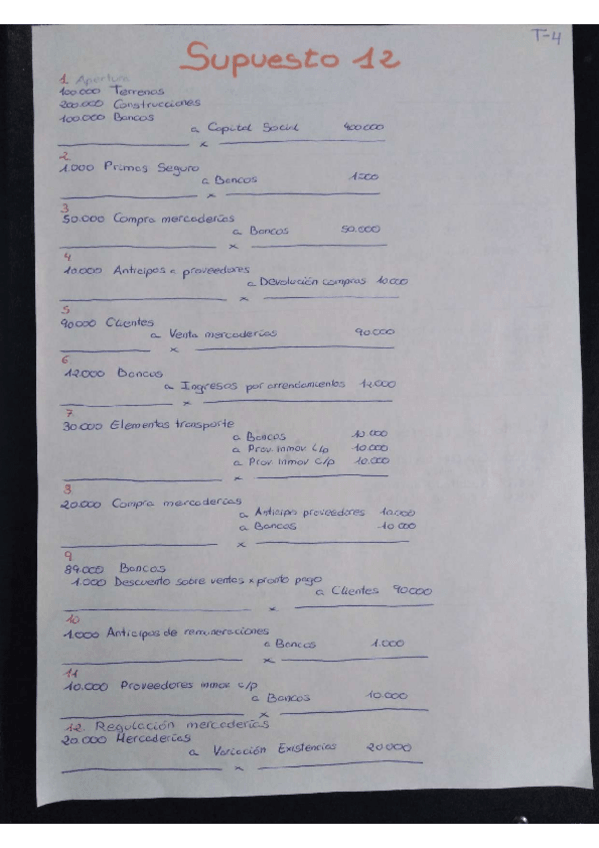 T-4
Supuesto 12
1. Apertura
100.000 Terrenos
200.000 Construcciones
100.000 Bancos
a Capital Social 400.000
x
2
1.000 Primas Seguro
a Bancos 1.000
x
3
50.000 Compra mercaderías
a Bancos 50.000
x
4
10.000 Anticipos a proveedores
a Devolución compras 10.000
x
5
90.000 Clientes
a Venta mercaderías 90.000
x
6
12.000 Bancos
a Ingresos por arrendamientos 12.000
x
7
30.000 Elementos transporte
a Bancos 10.000
a Prov. inmov L/p 10.000
a Prov. inmov C/p 10.000
x
8.
20.000 Compra mercaderías
a Anticipo proveedores 10.000
a Bancos 10.000
x
9
89.000 Bancos
1.000 Descuento sobre ventas x pronto pago
a Clientes 90.000
x
10
1.000 Anticipos de remuneraciones
a Bancos 1.000
x
11
10.000 Proveedores inmov c/p
a Bancos 10.000
x
12. Regulación mercaderías
20.000 Mercaderías
a Variación Existencias 20.000
x